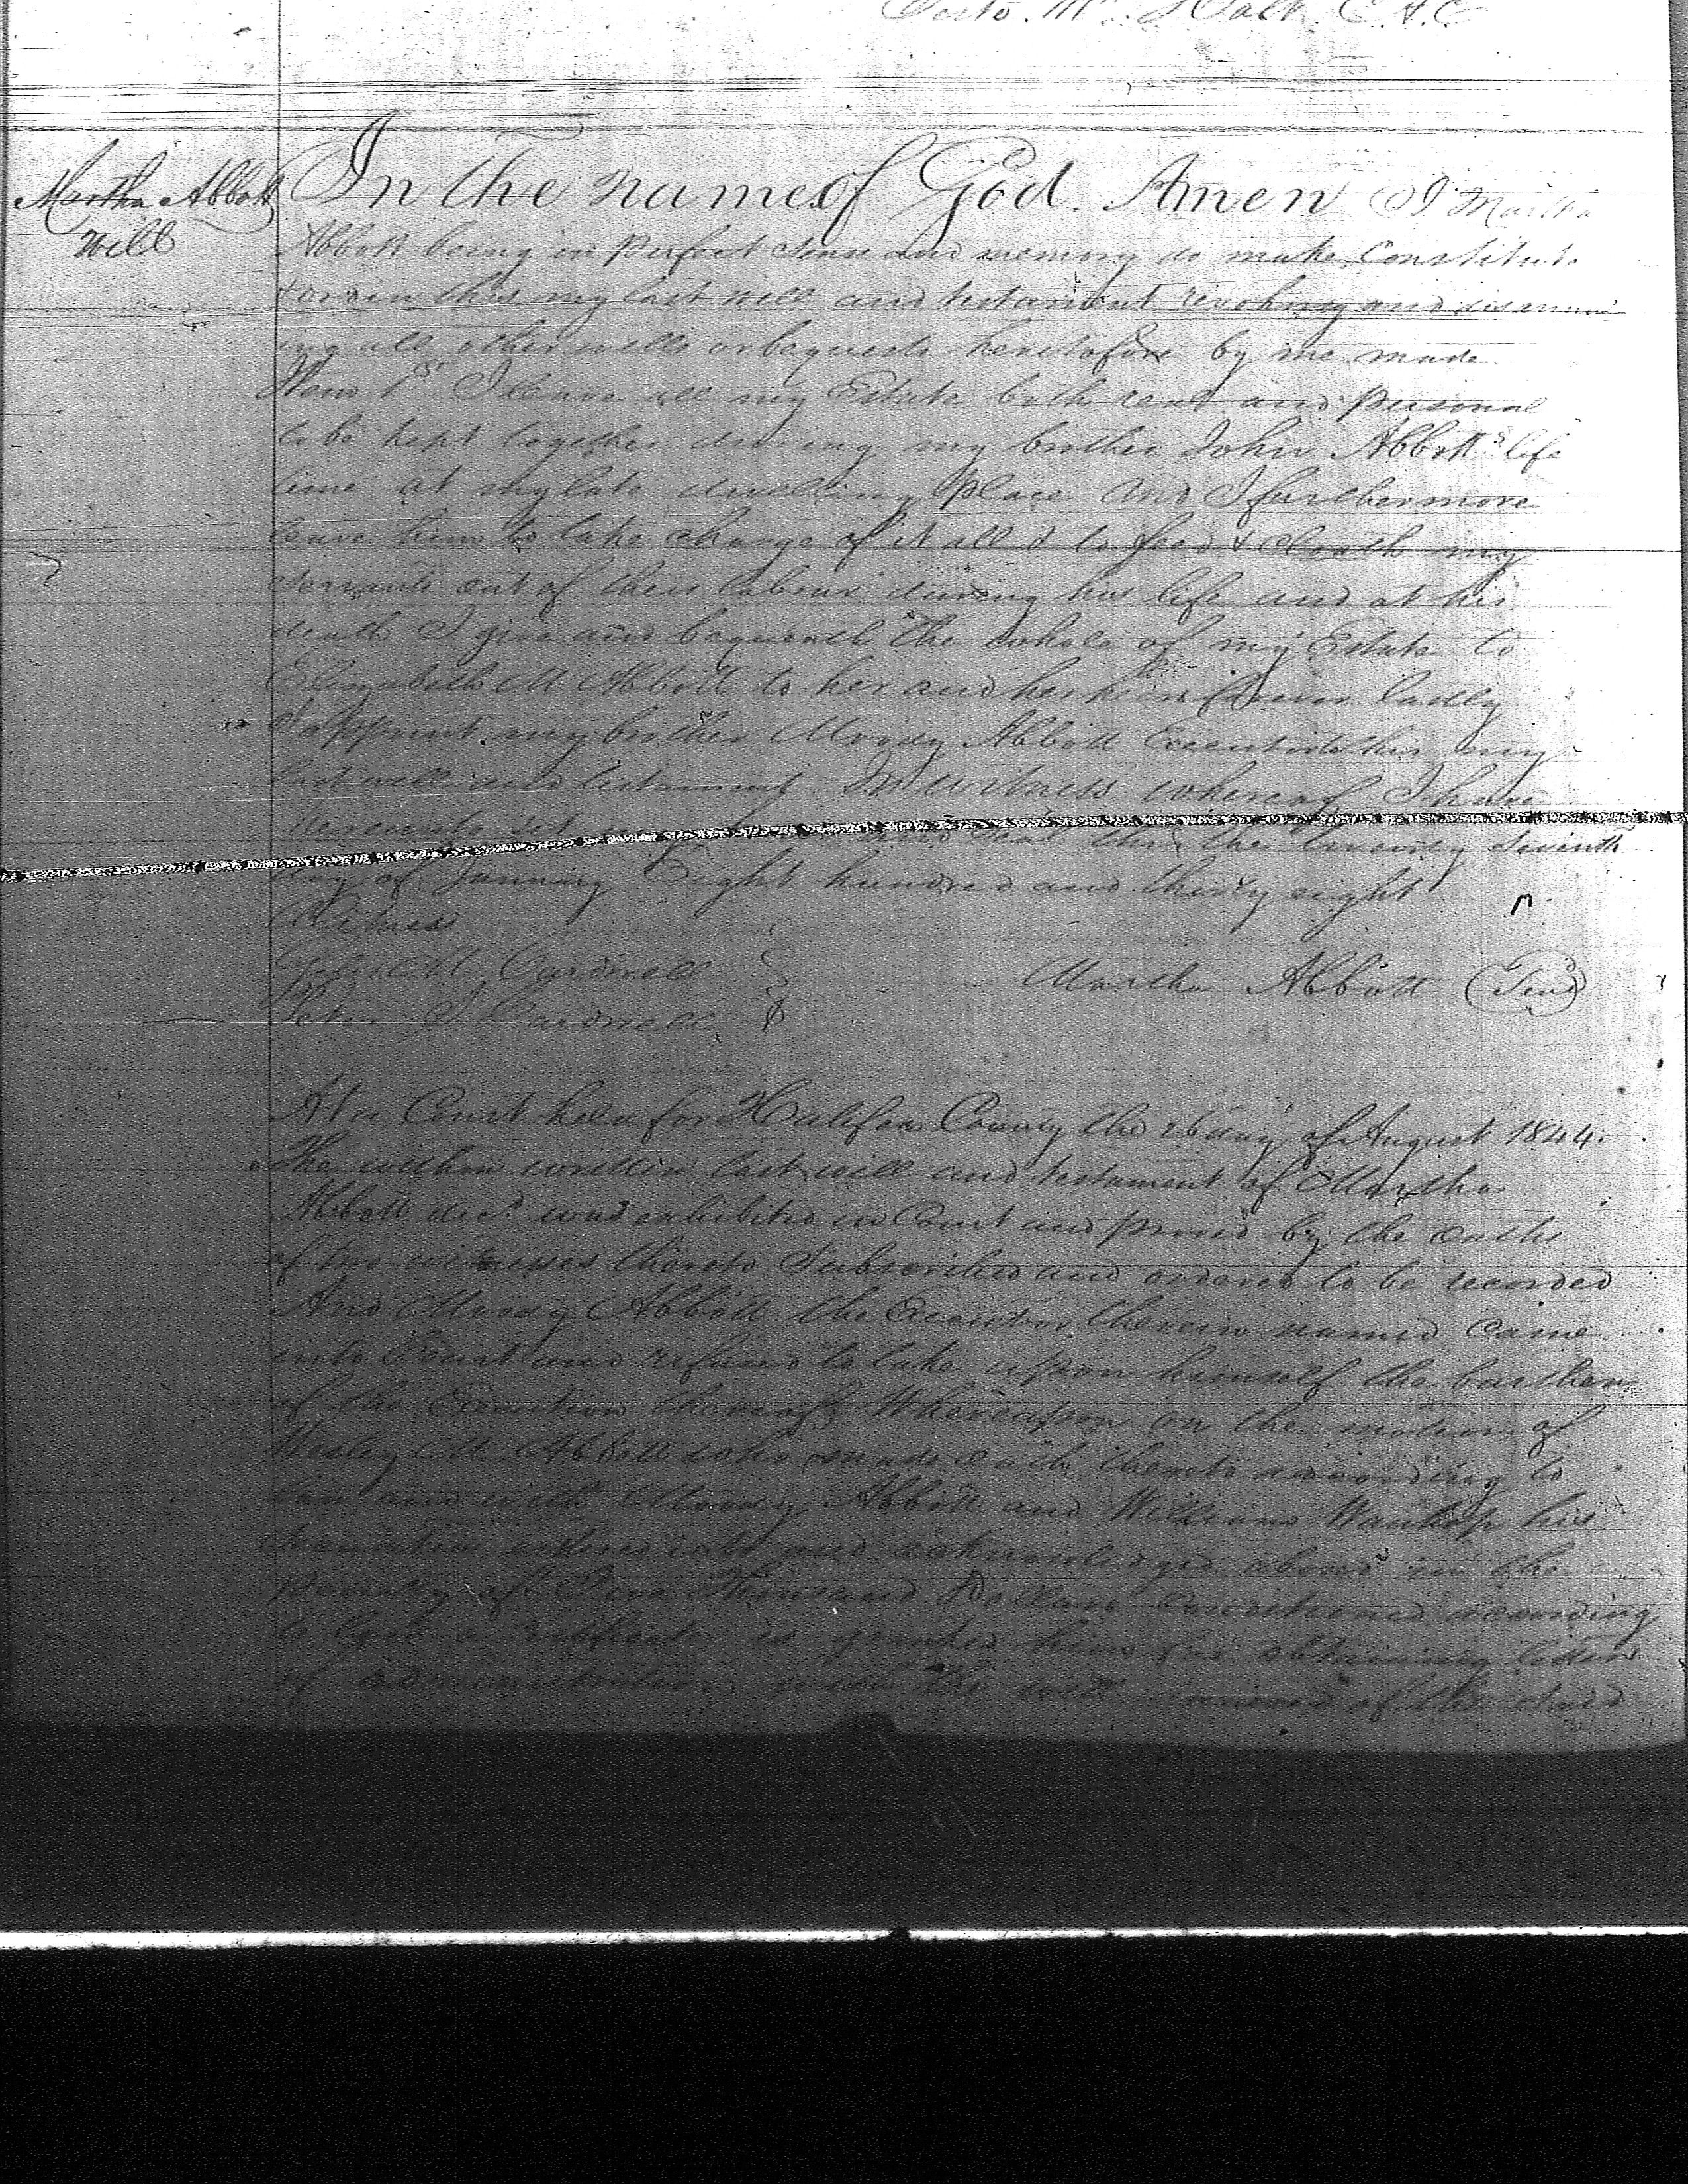 Martha Abbott
Will
In the name of God. Amen I Martha
Abbott being in perfect sense and memory do make Constitute
& ordein this my last will and testament revoking and
ing all other wills or bequests heretofore by me made
Item 1st I leave all my Estate both real and personal
to be kept together during my brother John Abbotts life
time at my late dwelling place And I furthermore
leave him to take charge of it all & to feed & cloath my
servants out of their labour during his life and at his
death I give and bequeath the whole of my Estate to
Elizabeth M Abbott to her and her heirs forever lastly
I appoint my brother Moody Abbott Executor to this my
last will and testament In witness whereof I have
hereunto set the twenty seventh
day of January Eight hundred and thirty eight
Witness
M. Cardwell
Martha Abbott (Seal)
Peter J Cardwell
At a Court held for Halifax County the 26 day of August 1844.
The within written last will and testament of Martha
Abbott decd. was exhibited in Court and proved by the oaths
of two witnesses thereto Subscribed and ordered to be recorded
And Moody Abbott the Executor therein named came
into Court and refused to take upon himself the burthen
of the Execution thereof, Whereupon on the motion of
Wesley M Abbott who made oath thereto according to
law and with Moody Abbott and William his
securities entered into and acknowledged a bond in the
penalty of Thousand Dollars Conditioned according
to law a certificate is granted him for obtaining letters
of administration with the will annexed of the said